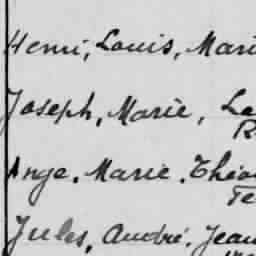 Henri, Louis, Mari
Joseph, Marie, Le
R
Ange, Marie, Théo
Te
Jules, André, Jean